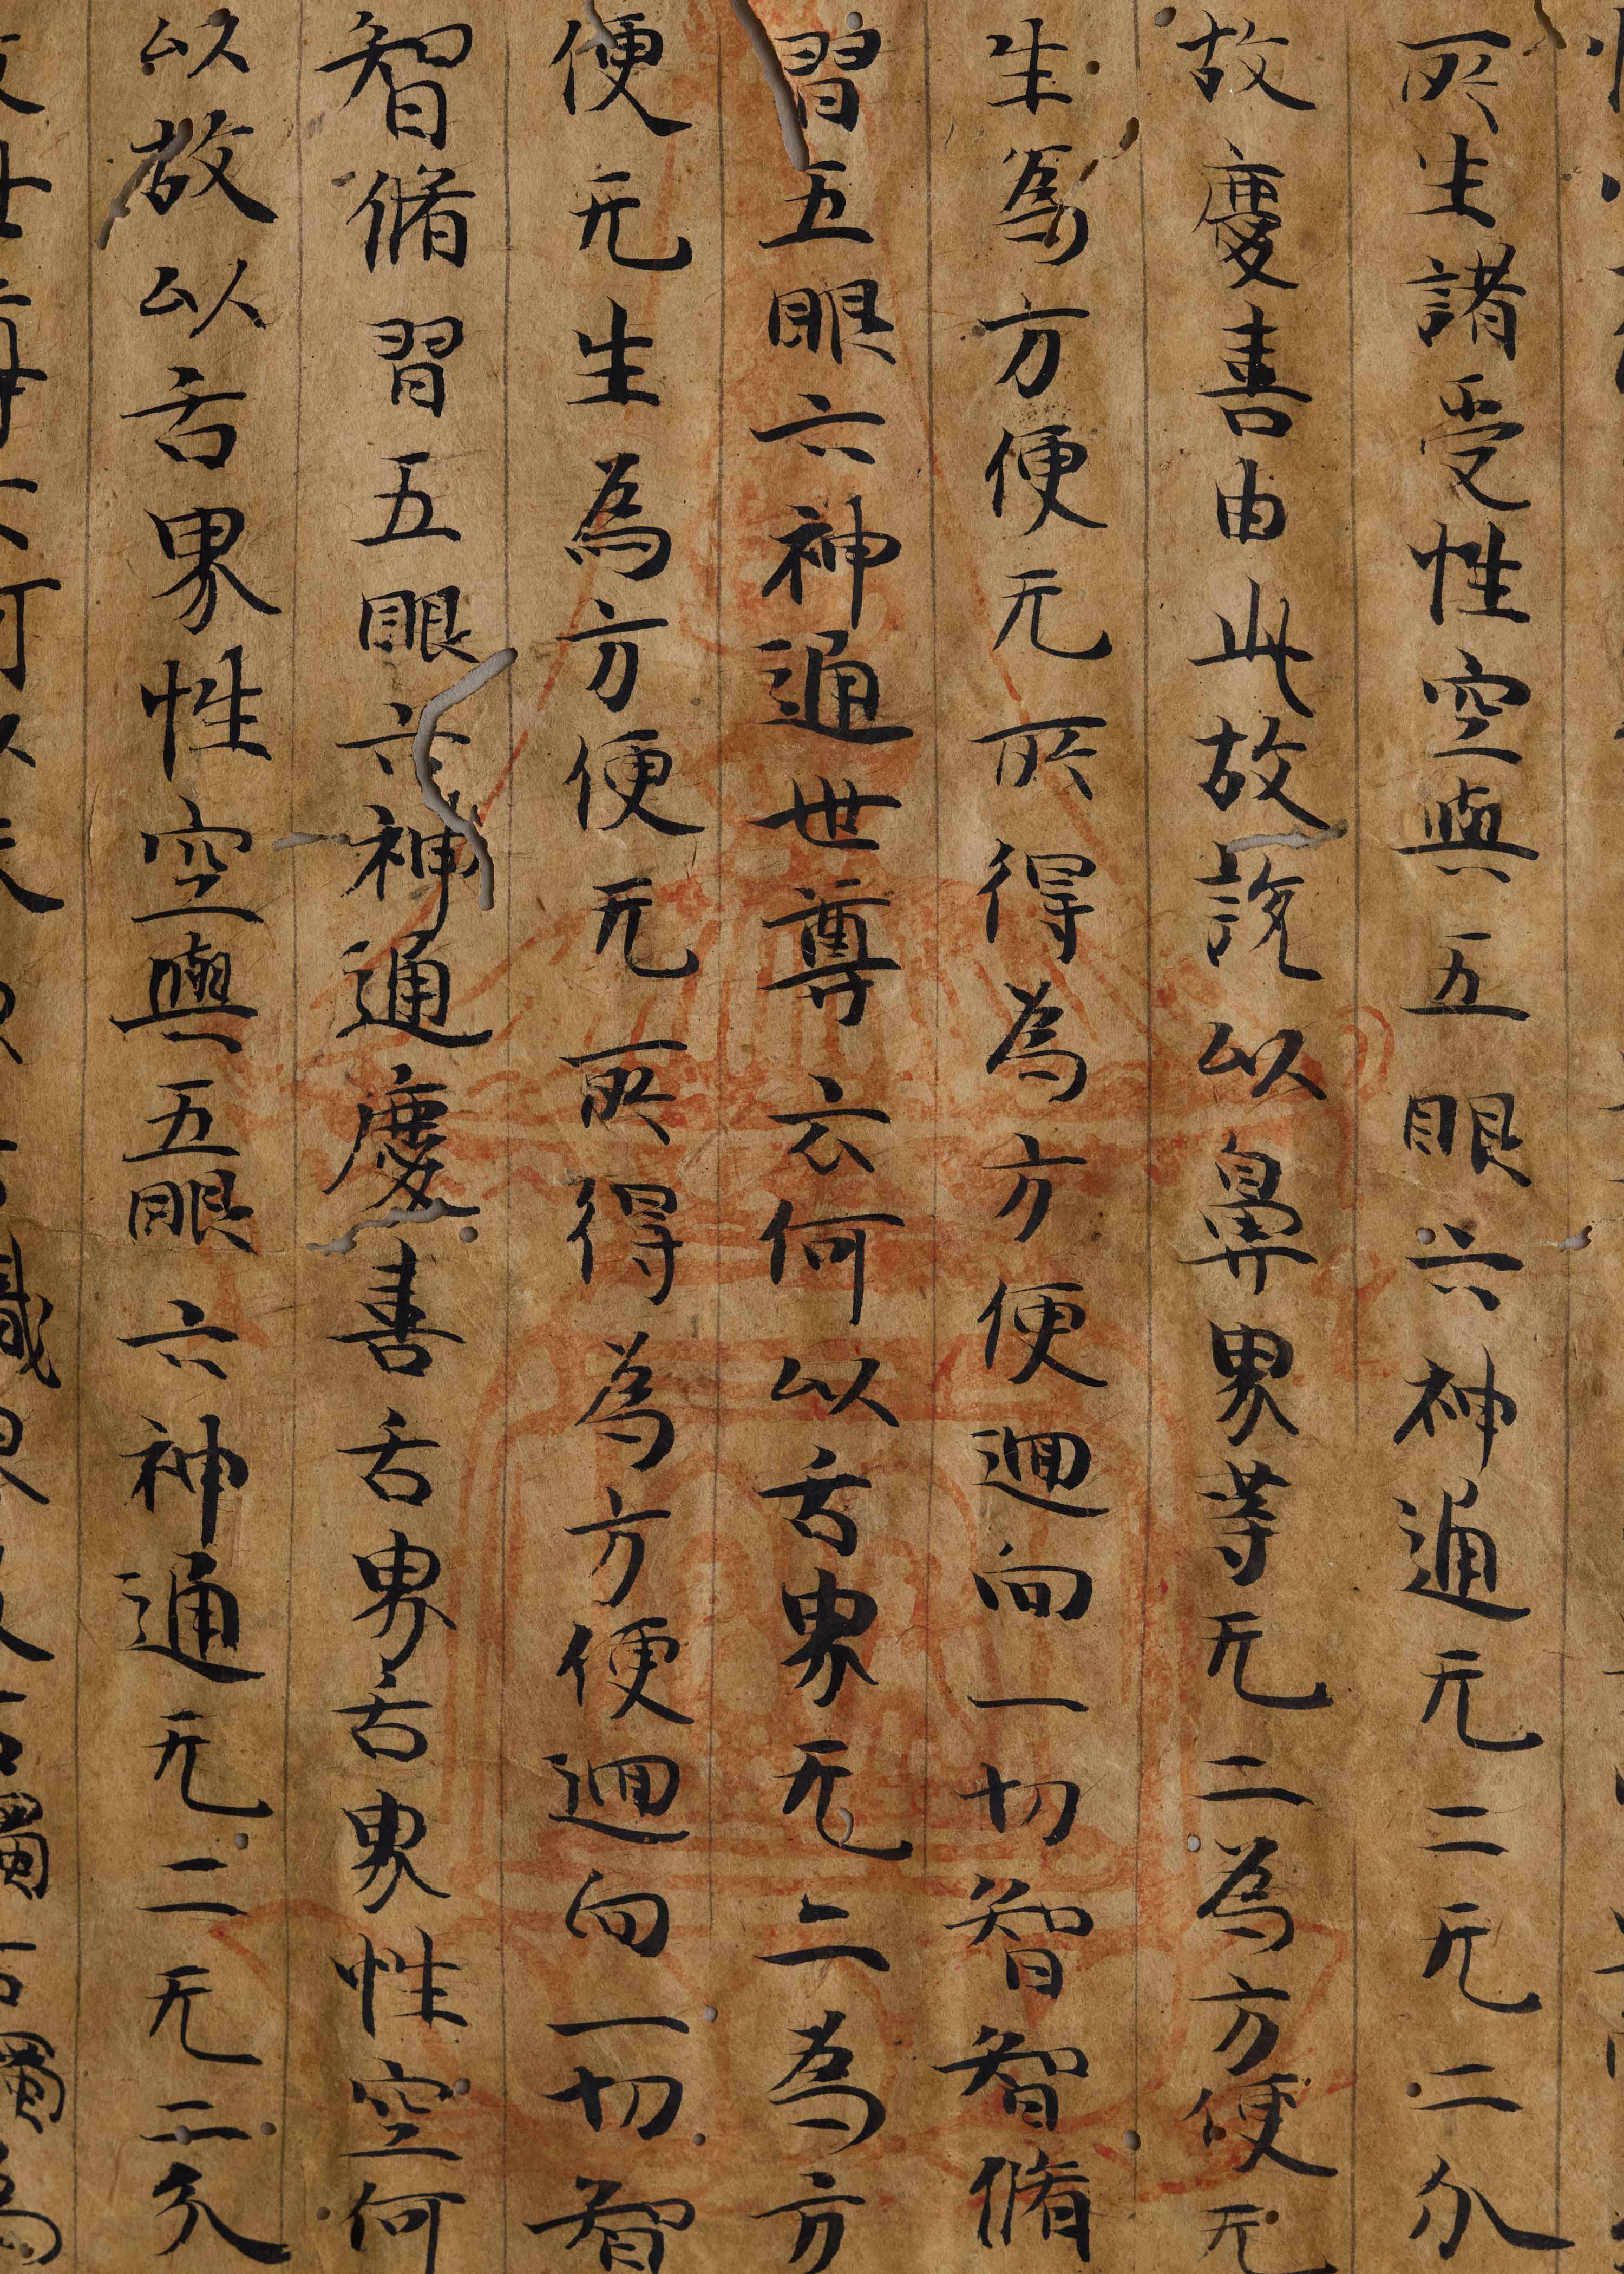 所生諸受性空與五眼六神通无二无二分
故慶喜由此故說以鼻界等无二為方便无
生為方便无所得為方便迴向一切智智脩
習五眼六神通世尊云何以舌界无二為方
便无生為方便无所得為方便迴向一切智
智脩習五眼六神通慶喜舌界舌界性空何
以故以舌界性空與五眼六神通无二无二分